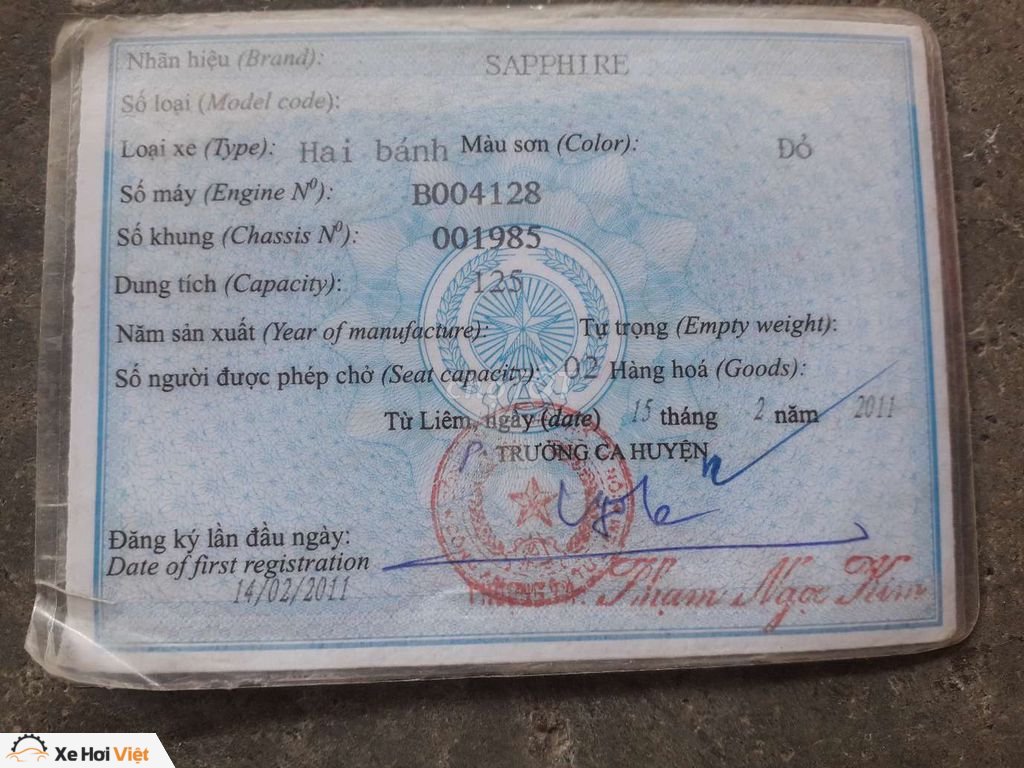 Nhãn hiệu (Brand): SAPPHIRE
Số loại (Model code):
Loại xe (Type): Hai bánh Màu sơn (Color): Đỏ
Số máy (Engine N⁰): B004128
Số khung (Chassis N⁰): 001985
Dung tích (Capacity): 125
Năm sản xuất (Year of manufacture): Tự trọng (Empty weight):
Số người được phép chở (Seat capacity): 02 Hàng hoá (Goods):
Từ Liêm, ngày (date) 15 tháng 2 năm 2011
P. TRƯỞNG CA HUYỆN
Đăng ký lần đầu ngày:
Date of first registration
14/02/2011
Phạm Ngọc Kim
Xe Hơi Việt